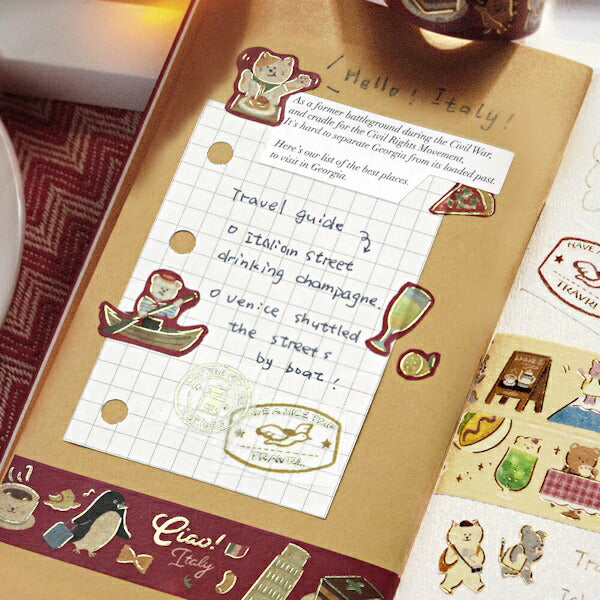 Hello! Italy!
As a former battleground during the Civil War,
and cradle for the Civil Rights Movement,
It's hard to separate Georgia from its loaded past.
Here's our list of the best places
to visit in Georgia.
Travel guide
o Italian street
drinking champagne.
o Venice shuttled
the streets
by boat!
HAVE A NICE TOUR
TRAVEL
Ciao!
Italy
HAVE A
TRAVEL